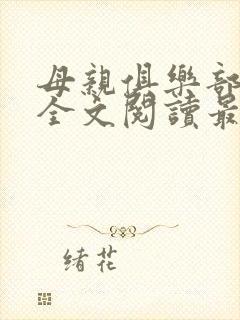 母親俱樂部
全文閱讀最
緒花